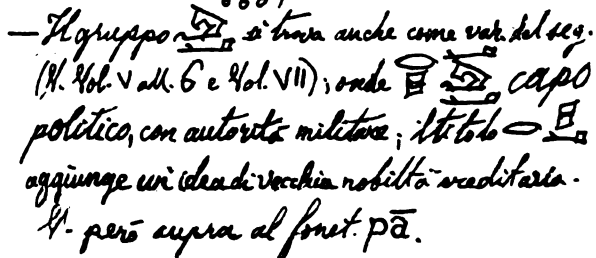 — Il gruppo si trova anche come var. del seg.
(V. Vol. V all. 6 e Vol. VII); onde capo
politico, con autorità militare; il titolo
aggiunge un'idea di vecchia nobiltà ereditaria.
V. però supra al fonet. pā.